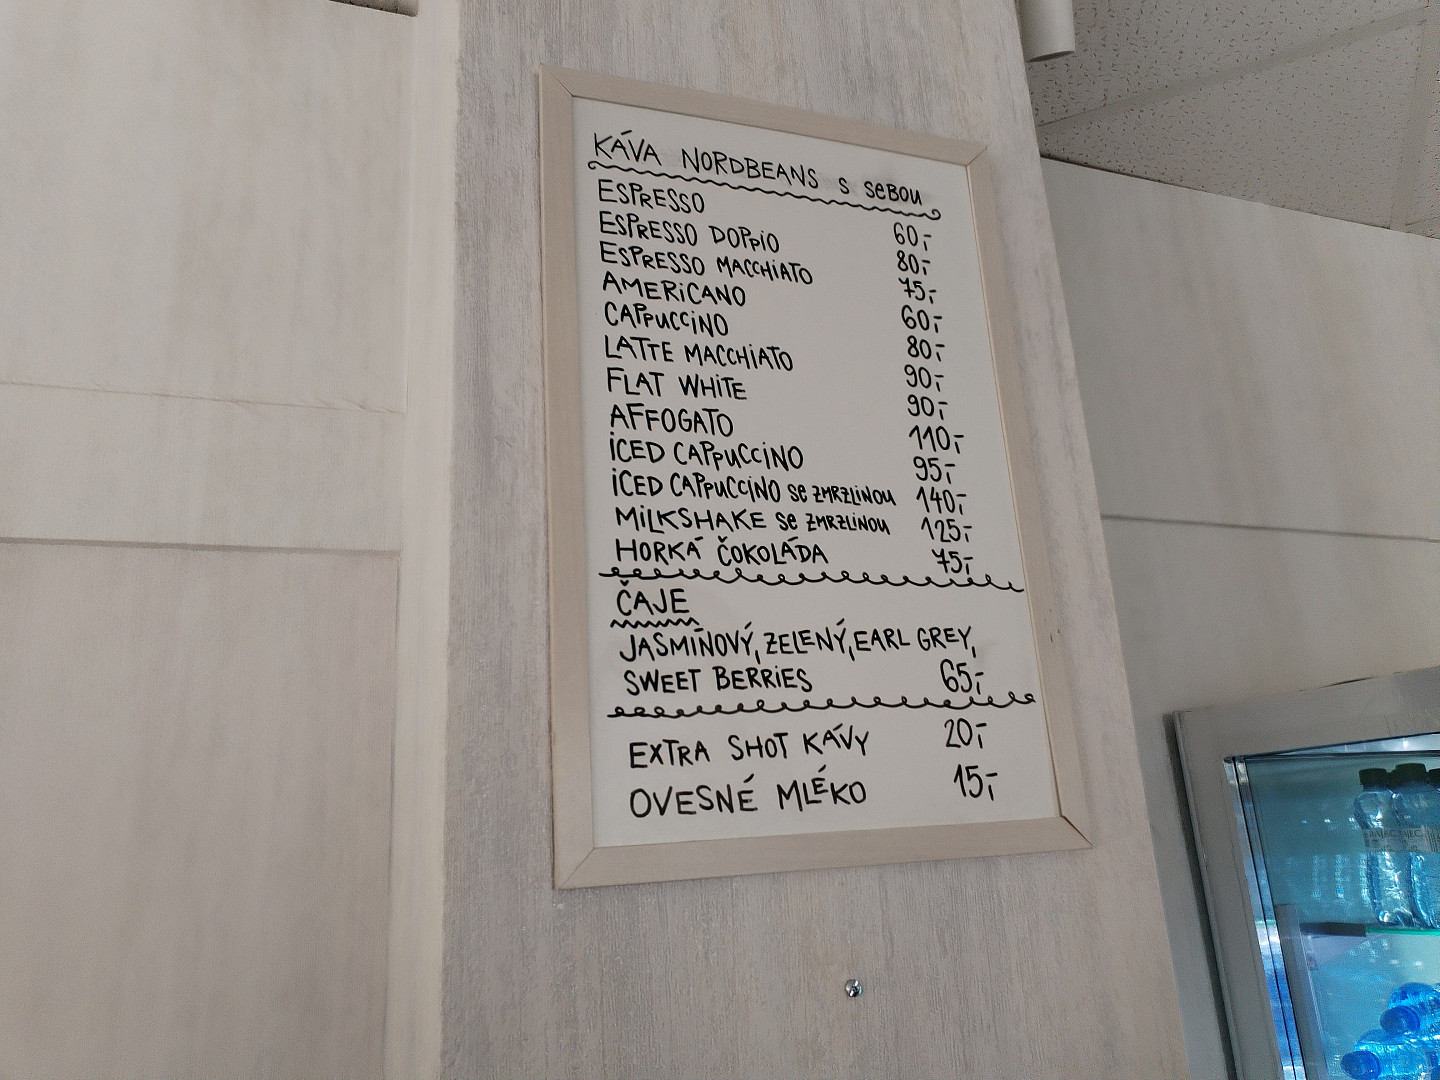 KÁVA NORDBEANS S SEBOU
ESPRESSO 60,-
ESPRESSO DOPPIO 80,-
ESPRESSO MACCHIATO 75,-
AMERICANO 60,-
CAPPUCCINO 80,-
LATTE MACCHIATO 90,-
FLAT WHITE 90,-
AFFOGATO 110,-
ICED CAPPUCCINO 95,-
ICED CAPPUCCINO SE ZMRZLINOU 140,-
MILKSHAKE SE ZMRZLINOU 125,-
HORKÁ ČOKOLÁDA 75,-
ČAJE
JASMÍNOVÝ, ZELENÝ, EARL GREY,
SWEET BERRIES 65,-
EXTRA SHOT KÁVY 20,-
OVESNÉ MLÉKO 15,-